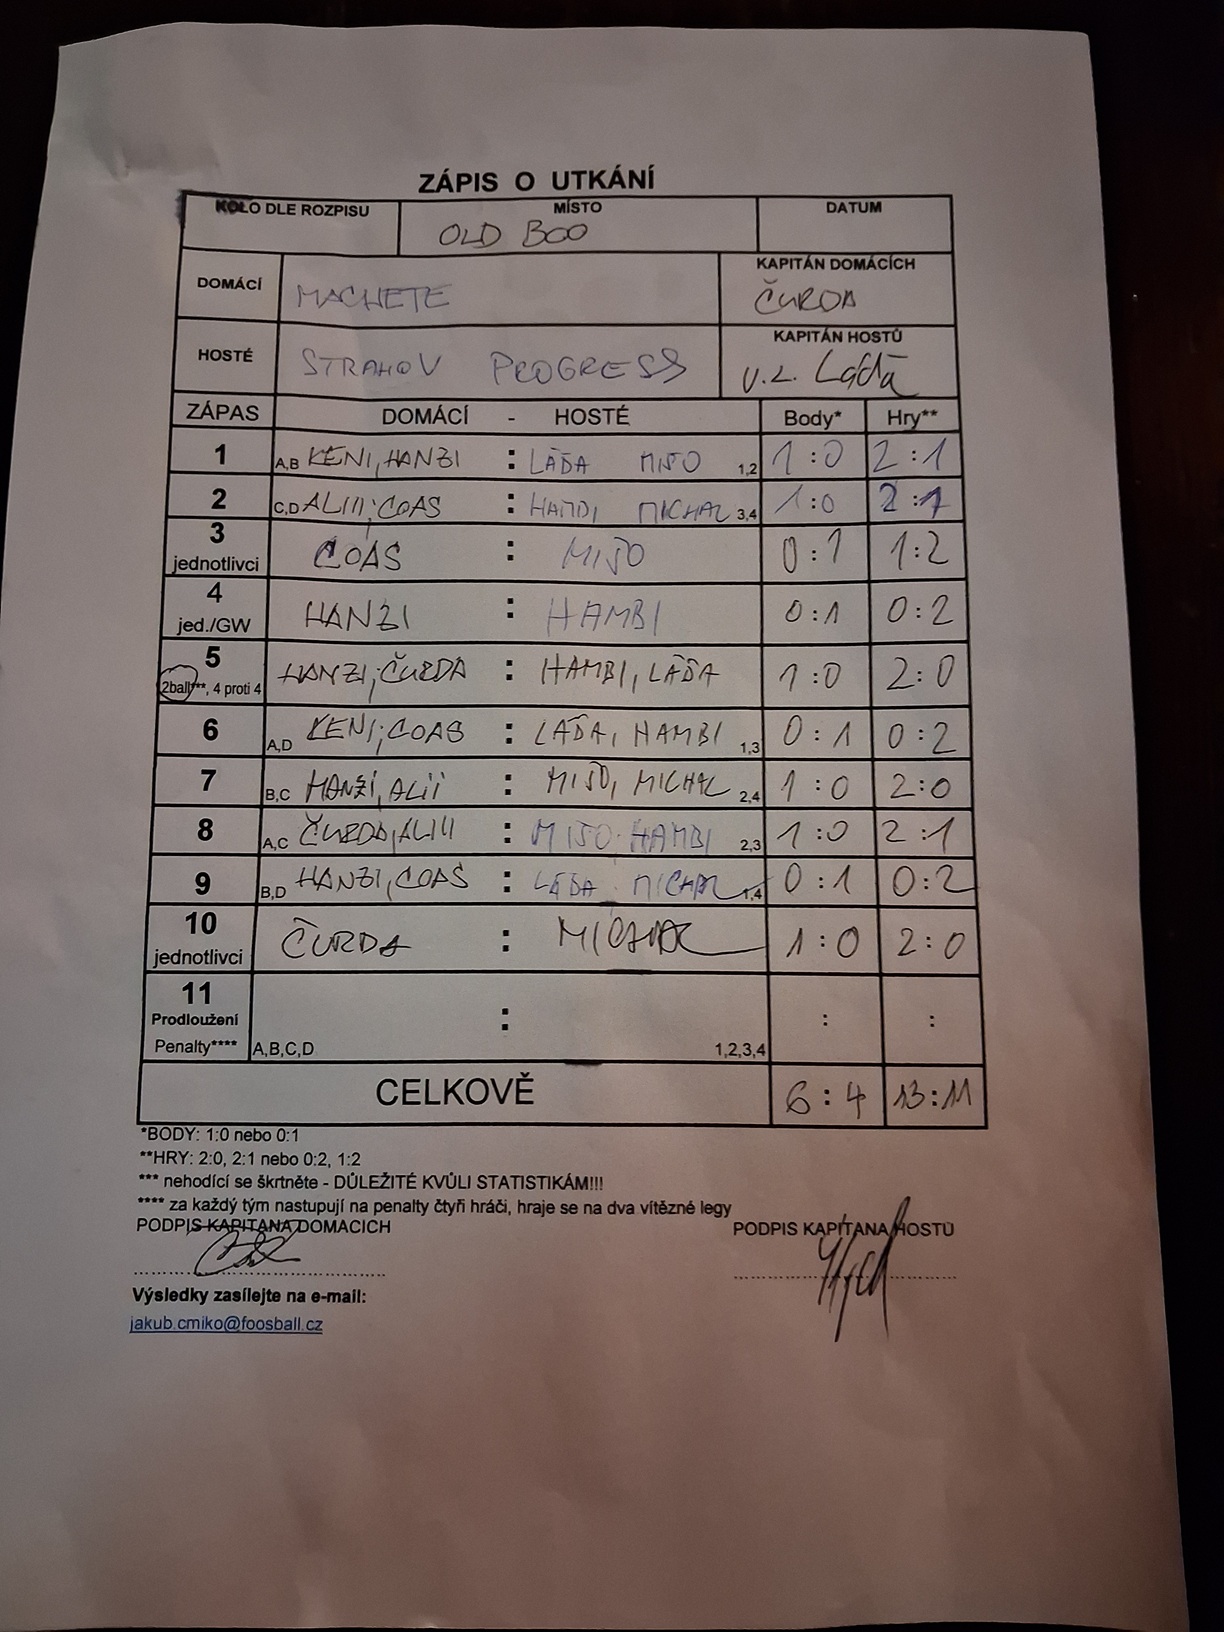 ZÁPIS O UTKÁNÍ
KOLO DLE ROZPISU MÍSTO DATUM
OLD BOO
DOMÁCÍ MACHETE KAPITÁN DOMÁCÍCH
ČURDA
HOSTÉ STRAHOV PROGRESS KAPITÁN HOSTŮ
V.Z. Láďa
ZÁPAS DOMÁCÍ - HOSTÉ Body* Hry**
1 A,B KENI, HANZI : LÁĎA MIŠO 1,2 1:0 2:1
2 C,D ALIII; COAS : HAMBI MICHAL 3,4 1:0 2:1
3 jednotlivci COAS : MIŠO 0:1 1:2
4 jed./GW HANZI : HAMBI 0:1 0:2
5 2ball***, 4 proti 4 HANZI; ČURDA : HAMBI, LÁĎA 1:0 2:0
6 A,D KENI; COAS : LÁĎA, HAMBI 1,3 0:1 0:2
7 B,C HANZI, ALII : MIŠO, MICHAL 2,4 1:0 2:0
8 A,C ČURDA, ALIII : MIŠO HAMBI 2,3 1:0 2:1
9 B,D HANZI, COAS : LÁĎA MICHAL 1,4 0:1 0:2
10 jednotlivci ČURDA : MICHAL 1:0 2:0
11 Prodloužení : : :
Penalty**** A,B,C,D 1,2,3,4
CELKOVĚ 6:4 13:11
*BODY: 1:0 nebo 0:1
**HRY: 2:0, 2:1 nebo 0:2, 1:2
*** nehodící se škrtněte - DŮLEŽITÉ KVŮLI STATISTIKÁM!!!
**** za každý tým nastupují na penalty čtyři hráči, hraje se na dva vítězné legy
PODPIS KAPITÁNA DOMÁCÍCH PODPIS KAPITÁNA HOSTŮ
Výsledky zasílejte na e-mail:
jakub.cmiko@foosball.cz